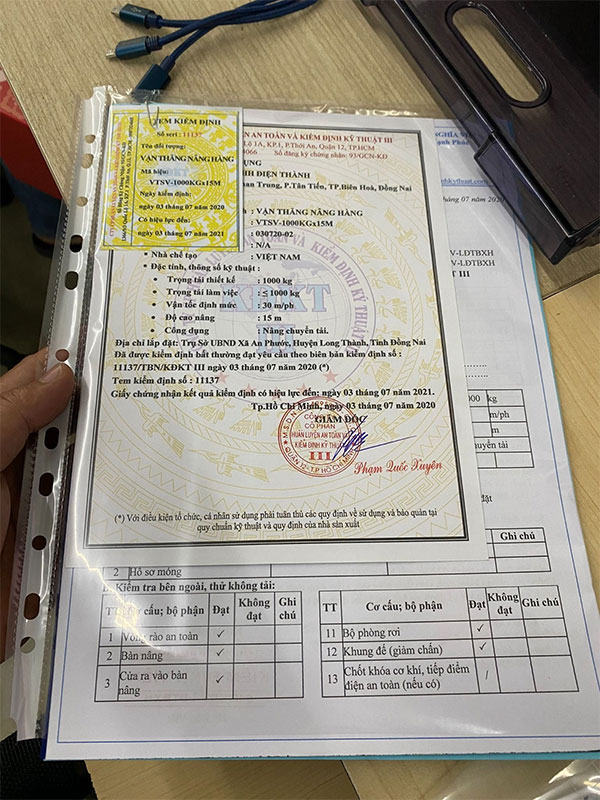 TEM KIỂM ĐỊNH
Số seri : 11137
Tên đối tượng:
VẬN THĂNG NÂNG HÀNG
Mã hiệu:
VTSV-1000KGx15M
Ngày kiểm định:
ngày 03 tháng 07 năm 2020
Có hiệu lực đến:
ngày 03 tháng 07 năm 2021
N AN TOÀN VÀ KIỂM ĐỊNH KỸ THUẬT III
Lộ 1A, KP.1, P.Thới An, Quận 12, TP.HCM
4066 Số đăng ký chứng nhận: 93/GCN-KĐ
ỤNG
H ĐIỆN THÀNH
an Trung, P.Tân Tiến, TP.Biên Hoà, Đồng Nai
: VẬN THĂNG NÂNG HÀNG
: VTSV-1000KGx15M
: 030720-02
: N/A
• Nhà chế tạo : VIỆT NAM
• Đặc tính, thông số kỹ thuật :
• Trọng tải thiết kế : 1000 kg
• Trọng tải làm việc : ≤ 1000 kg
• Vận tốc định mức : 30 m/ph
• Độ cao nâng : 15 m
• Công dụng : Nâng chuyển tải.
Địa chỉ lắp đặt: Trụ Sở UBND Xã An Phước, Huyện Long Thành, Tỉnh Đồng Nai
Đã được kiểm định bất thường đạt yêu cầu theo biên bản kiểm định số :
11137/TBN/KĐKT III ngày 03 tháng 07 năm 2020 (*)
Tem kiểm định số : 11137
Giấy chứng nhận kết quả kiểm định có hiệu lực đến: ngày 03 tháng 07 năm 2021.
Tp.Hồ Chí Minh, ngày 03 tháng 07 năm 2020
GIÁM ĐỐC
CỔ PHẦN
HUẤN LUYỆN AN TOÀN VÀ
KIỂM ĐỊNH KỸ THUẬT
III
QUẬN 12 - T.P HỒ CHÍ MINH
Phạm Quốc Xuyên
(*) Với điều kiện tổ chức, cá nhân sử dụng phải tuân thủ các quy định về sử dụng và bảo quản tại
quy chuẩn kỹ thuật và quy định của nhà sản xuất
NGHĨA VI
ạnh Phúc
hkythuat.com
áng 07 năm 2020
V-LĐTBXH
SV-LĐTBXH
T III
000 kg
m/ph
m
uyển tải
đạt
Ghi chú
2 Hồ sơ móng
B. Kiểm tra bên ngoài, thử không tải:
TT Cơ cấu; bộ phận Đạt Không đạt Ghi chú
1 Vòng rào an toàn ✓
2 Bàn nâng ✓
3 Cửa ra vào bàn nâng ✓
TT Cơ cấu; bộ phận Đạt Không đạt Ghi chú
11 Bộ phòng rơi ✓
12 Khung đế (giảm chấn) ✓
13 Chốt khóa cơ khí, tiếp điểm điện an toàn (nếu có) /